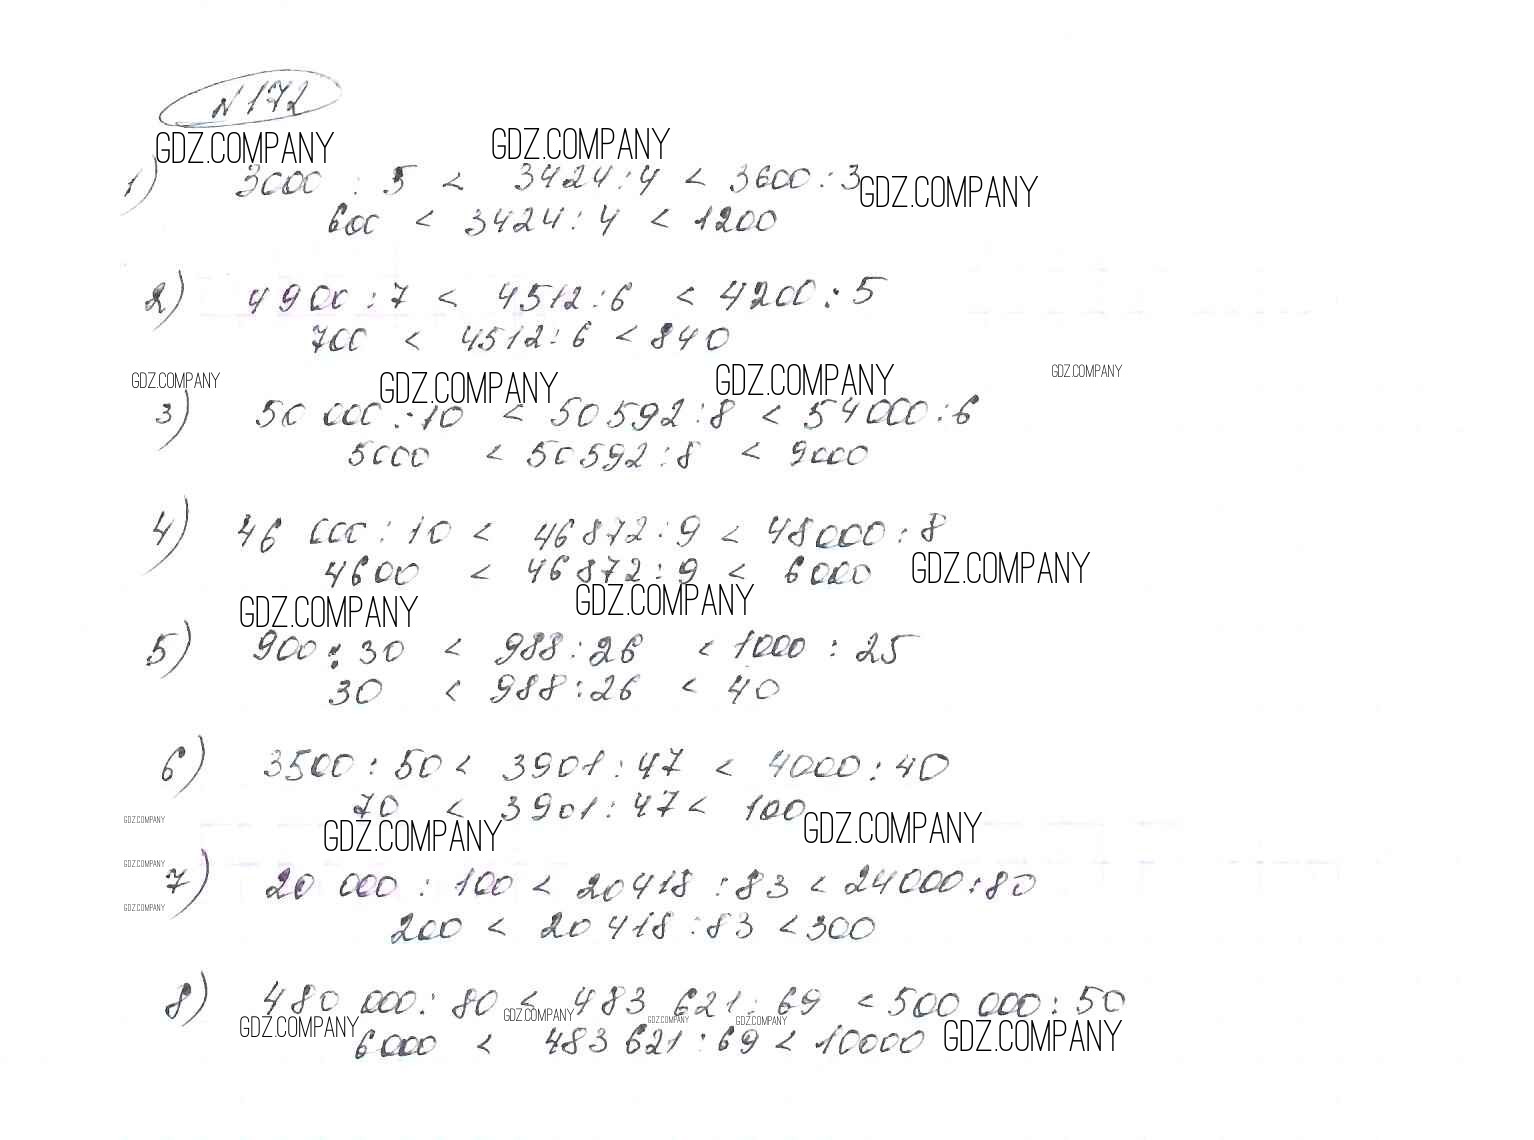 N 172
GDZ.COMPANY GDZ.COMPANY
1) 3000 : 5 < 3424 : 4 < 3600 : 3 GDZ.COMPANY
600 < 3424 : 4 < 1200
2) 4900 : 7 < 4512 : 6 < 4200 : 5
700 < 4512 : 6 < 840
GDZ.COMPANY GDZ.COMPANY GDZ.COMPANY GDZ.COMPANY
3) 50 000 : 10 < 50 592 : 8 < 54 000 : 6
5000 < 50 592 : 8 < 9000
4) 46 000 : 10 < 46 872 : 9 < 48000 : 8
4600 < 46 872 : 9 < 6000 GDZ.COMPANY
GDZ.COMPANY GDZ.COMPANY
5) 900 : 30 < 988 : 26 < 1000 : 25
30 < 988 : 26 < 40
6) 3500 : 50 < 3901 : 47 < 4000 : 40
70 < 3901 : 47 < 100
GDZ.COMPANY GDZ.COMPANY GDZ.COMPANY
GDZ.COMPANY
7) 20 000 : 100 < 20418 : 83 < 24000 : 80
GDZ.COMPANY
200 < 20 418 : 83 < 300
8) 480 000 : 80 < 483 621 : 69 < 500 000 : 50
GDZ.COMPANY GDZ.COMPANY GDZ.COMPANY GDZ.COMPANY GDZ.COMPANY
6000 < 483 621 : 69 < 10000